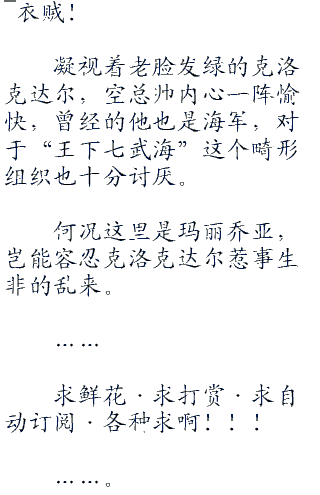 衣贼！
凝视着老脸发绿的克洛
克达尔，空总帅内心一阵愉
快，曾经的他也是海军，对
于“王下七武海”这个畸形
组织也十分讨厌。
何况这里是玛丽乔亚，
岂能容忍克洛克达尔惹事生
非的乱来。
……
求鲜花·求打赏·求自
动订阅·各种求啊！！！
……。